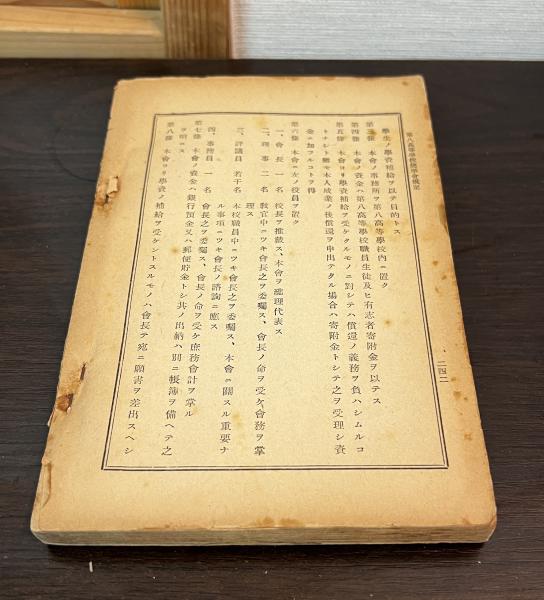 第八高等學校奬學會規定
二四二
學生ノ學資補給ヲ以テ目的トス
第三條 本會ノ事務所ヲ第八高等學校內ニ置ク
第四條 本會ノ資金ハ第八高等學校職員生徒及ヒ有志者寄附金ヲ以テス
第五條 本會ヨリ學資補給ヲ受ケタルモノニ對シテハ償還ノ義務ヲ負ハシムルコ
トナシト雖モ本人成業ノ後償還ヲ申出テタル場合ハ寄附金トシテ之ヲ受理シ資
金ニ加フルコトヲ得
第六條 本會ニ左ノ役員ヲ置ク
一、會長 一名 校長ヲ推戴ス、本會ヲ總理代表ス
二、理事 二名 敎官中ニツキ會長之ヲ委囑ス、會長ノ命ヲ受ケ會務ヲ掌
理ス
三、評議員 若干名 本校職員中ニツキ會長之ヲ委囑ス、本會ニ關スル重要ナ
ル事項ニツキ會長ノ諮詢ニ應ス
四、事務員 一名 會長之ヲ委囑ス、會長ノ命ヲ受ケ庶務會計ヲ掌ル
第七條 本會ノ資金ハ銀行預金又ハ郵便貯金トシ其ノ出納ハ別ニ帳簿ヲ備ヘテ之
ヲ明ニス
第八條 本會ヨリ學資ノ補給ヲ受ケントスルモノハ會長テ宛ニ願書ヲ差出スヘシ